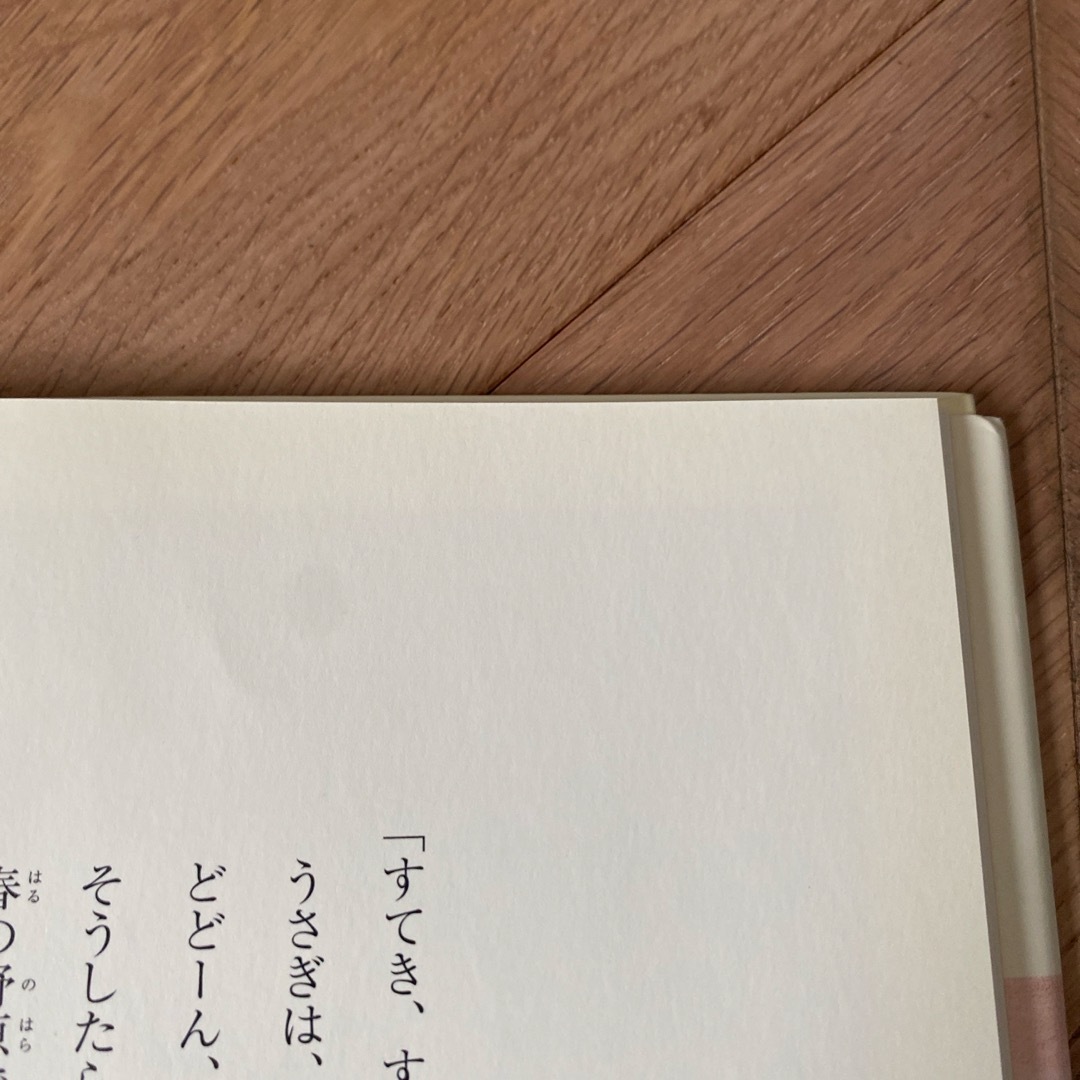 「すてき、す
うさぎは、
どどーん、
そうしたら
春の野原
はる
の
はら